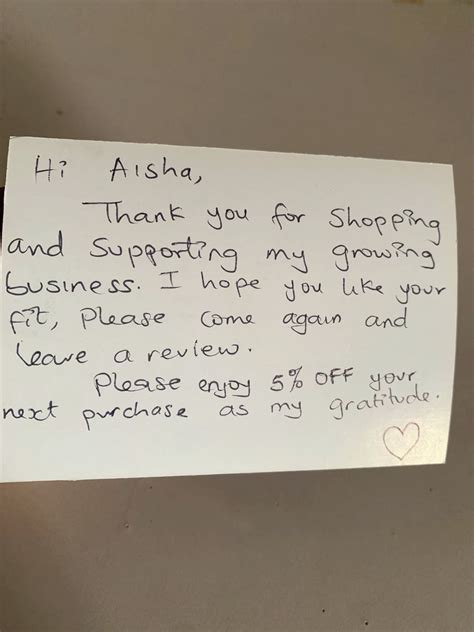 Hi Aisha,
Thank you for Shopping
and Supporting my growing
business. I hope you like your
fit, Please come again and
leave a review.
Please enjoy 5% OFF your
next purchase as my gratitude.